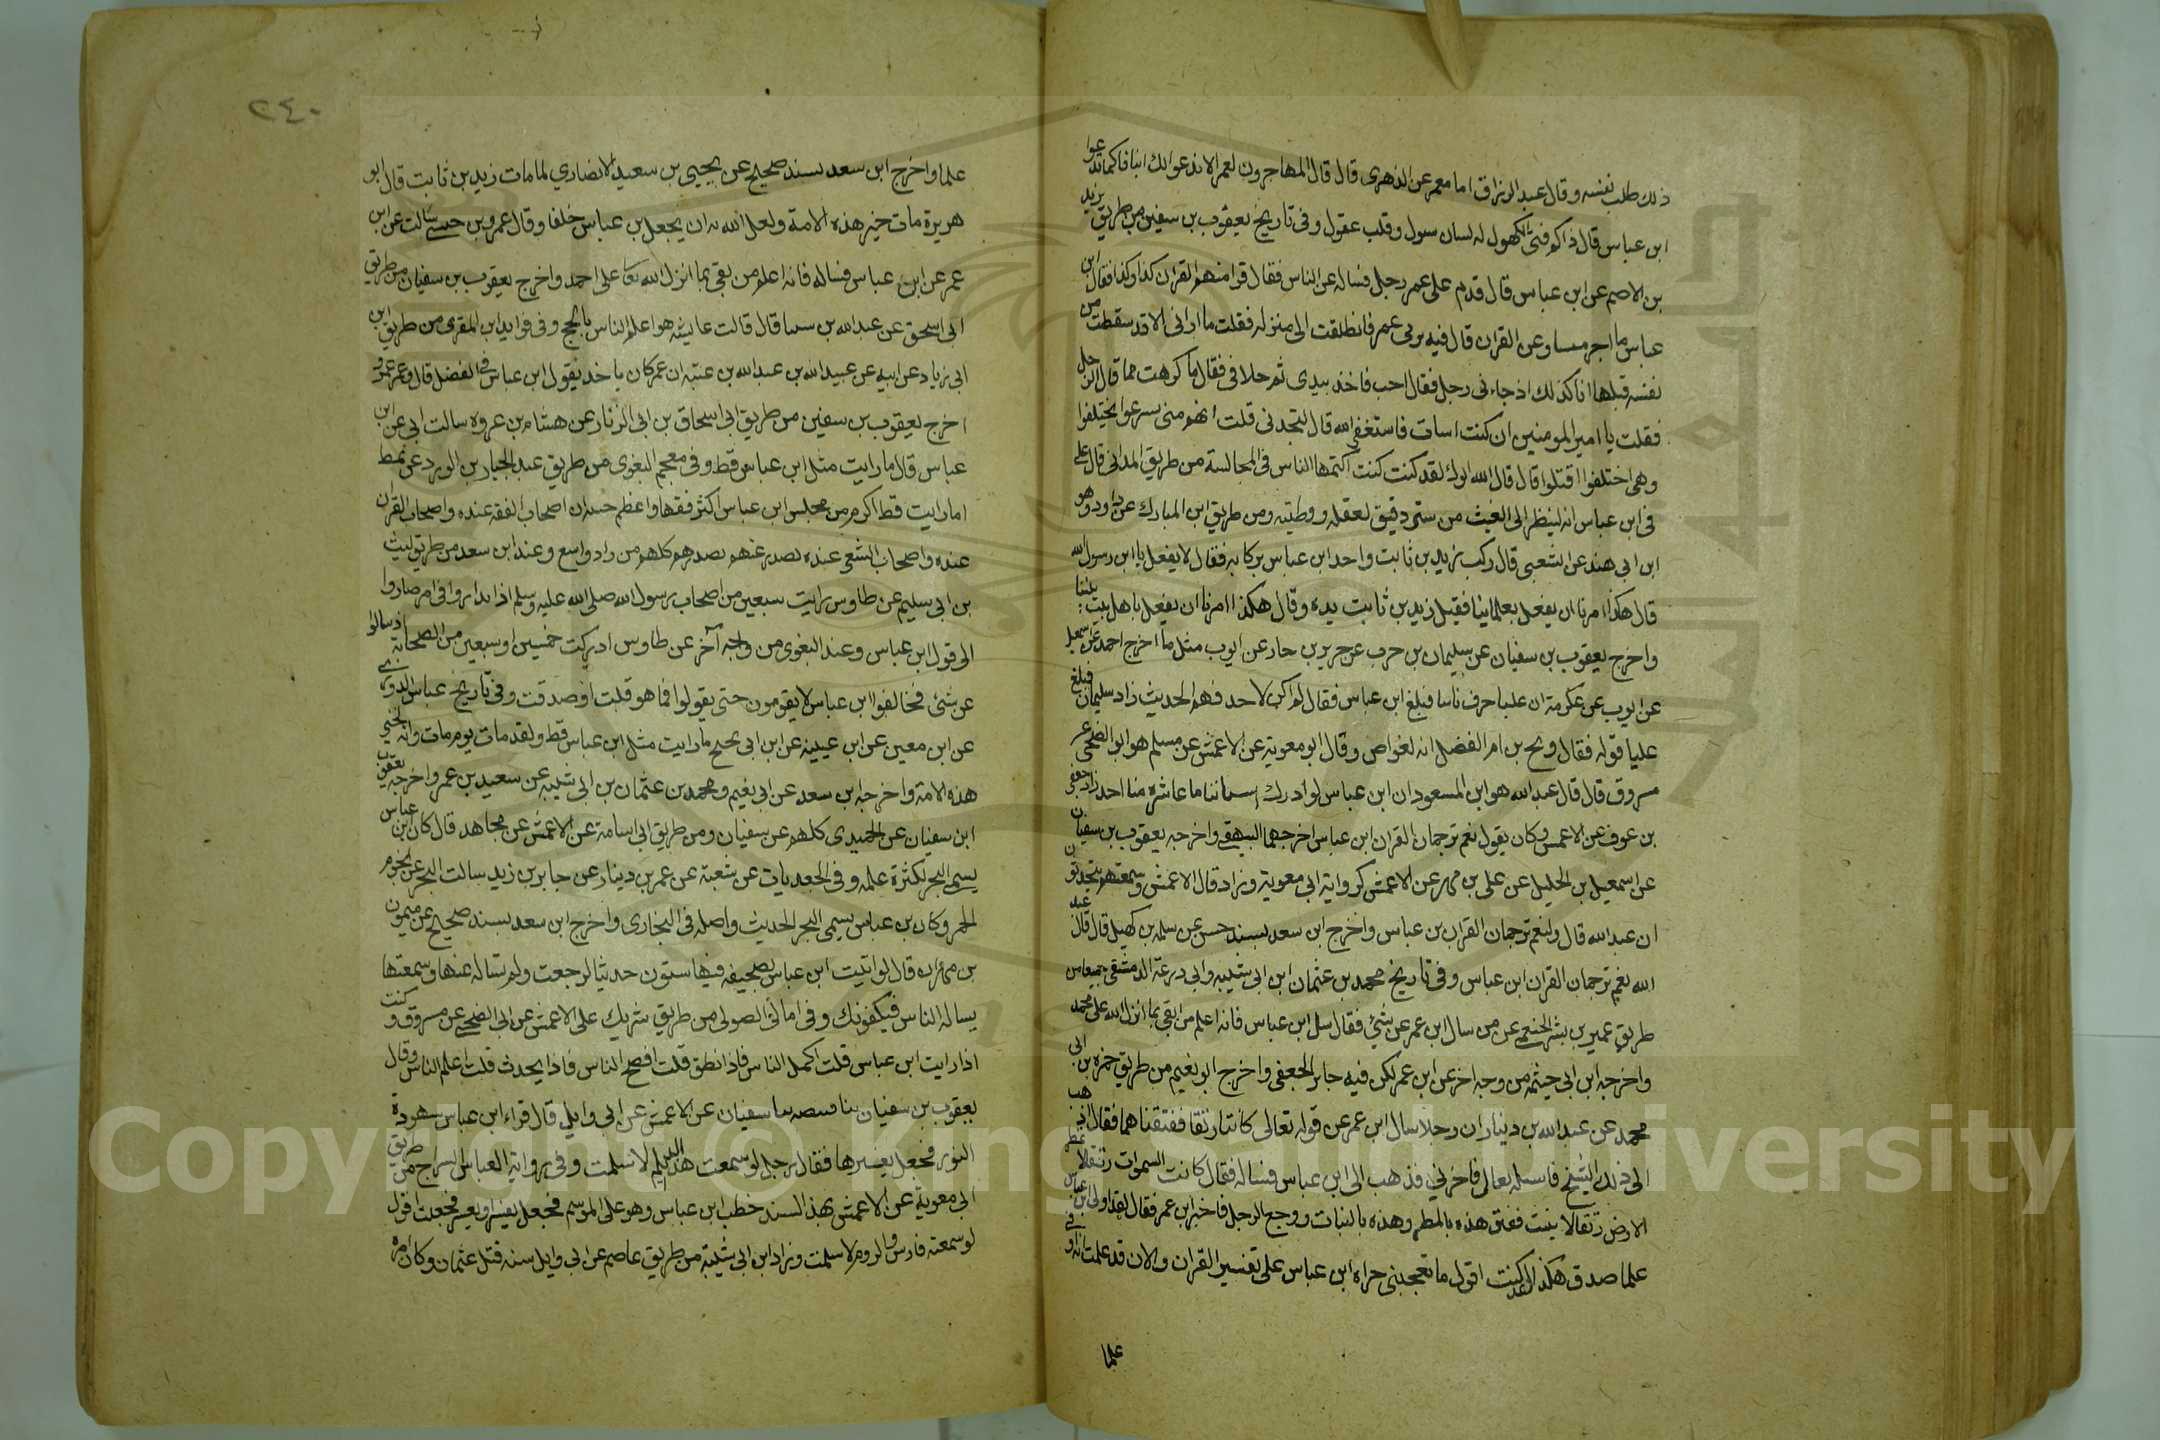 ذلك طلب نفسه وقال عبد الرزاق اما معمر عن الزهرى قال قال المهاجرون لعمر الا ندعوا لك ابناءنا كما تدعوا
ابن عباس قال ذاكم فتى الكهول له لسان سول وقلب عقول وفى تاريخ يعقوب بن سفين من طريق يزيد
بن الاصم عن ابن عباس قال قدم على عمر رجل فساله عن الناس فقال قرا منهم القران كذا وكذا فقال ابن
عباس ما عن القران قال فيه بربى عمر فانطلقت الى منزلى فقلت ما ارانى الا قد سقطت من
نفسه قبلها انا كذلك اذ جاءنى رجل فقال احب فاخذ بيدى ثم خلا فى فقال ما كرهت مما قال الرجل
فقلت يا امير المومنين ان كنت اسات فاستغفر الله قال لتحدثنى قلت انهم متى يسرعوا يختلفوا
وهى اختلفوا اقتتلوا قال قال الله ابوك لقد كنت كنت اكتمها الناس فى المجالسة من طريق المدانى قال على
فى ابن عباس انه لينظر الى الغيث من ستر دقيق لعقله وفطنته ومن طريق ابن المبارك عن داود وهو
ابن ابى هند عن الشعبى قال ركب زيد بن ثابت واحد ابن عباس بركابه فقال لا يفعل يا ابن رسول الله
قال هكذا امرنا ان يفعل بعلمائنا فقبل زيد بن ثابت يده وقال هكذا امرنا ان يفعل باهل بيت نبينا
واخرج يعقوب بن سفيان عن سليمان بن حرب عن جرير بن حاز عن ايوب مثل ما اخرج احمد عن اسمعيل
عن ايوب عن عكرمة ان عليا حرق ناسا فبلغ ابن عباس فقال لم اكن لاحد فهم الحديث زاد سليمان فبلغ
عليا قوله فقال ويح بن ام الفضل انه لغواص وقال ابو معوية عن الاعمش عن مسلم هو ابو الضحى عن
مسروق قال قال عبد الله هو ابن المسعود ان ابن عباس لو ادرك اسناننا ما عاشره منا احد زاد جعفر
بن عوف عن الاعمس وكان يقول نعم ترجمان القران ابن عباس اخرجهما البيهقى واخرجه يعقوب بن سفيان
عن اسمعيل بن الخليل عن على بن مهر عن الاعمش كرواية ابى معوية وزاد قال الاعمش وسمعتهم يتحدثون
ان عبد الله قال ولنعم ترجمان القران بن عباس واخرج ابن سعد بسند حسن عن سلمه بن كهيل قال قال عبد
الله نعم ترجمان القران ابن عباس وفى تاريخ محمد بن عثمان ابن ابى شيبه وابى درعة الدمشقى جميعا من
طريق عمير بن بشر الخثعمى عن من سال ابن عمر عن شئ فقال سل ابن عباس فانه اعلم من بقى بما انزل الله على محمد
واخرجه ابن ابى خيثمه من وجه اخر عن ابن عمر لكن فيه جابر الجعفى واخرج ابو نعيم من طريق حمزه بن ابى
محمد عن عبد الله بن دينار ان رجلا سال ابن عمر عن قوله تعالى كانتا رتقا ففتقناهما فقال اذهب
الى ذلك الشيخ فاسله تعالى فاخبرنى فذهب الى ابن عباس فساله فقال كانت السموات رتقا لا تمطر
الارض رتقا لا ينبت ففتق هذه بالمطر وهذه بالنبات ورجع الرجل فاخبر ابن عمر فقال لقد اوتى ابن عباس
علما صدق هكذا لقد كنت اقول ما تعجبنى جراه ابن عباس على تفسير القران والان قد علمت انه اوتى
علما
٢٤٠
علما واخرج ابن سعد بسند صحيح عن يحيى بن سعيد الانصاري لما مات زيد بن ثابت قال ابو
هريرة مات خير هذه الامة ولعل الله ان يجعل بن عباس خلفا وقال عمرو بن حبشى سالت عن ابن
عمر عن ابن عباس فساله فانه اعلم من بقى بما انزل الله تعا على احمد واخرج يعقوب بن سفيان من طريق
ابى اسحق عن عبد الله بن سبا قال قالت عايشه هو اعلم الناس بالحج وفى فوايد ابن المقرى من طريق ابن
ابى زياد عن ابيه عن عبيد الله بن عبد الله بن عتبه ان عمر كان ياخذ بقول ابن عباس فى الفضل قال وعمر عمر
اخرج يعقوب بن سفين من طريق ابى اسحاق بن ابى الزناد عن هشام بن عروه سالت ابى عن ابن
عباس قال ما رايت مثل ابن عباس قط وفى معجم البغوى من طريق عبد الجبار بن الورد عن عطا
اما رايت قط اكرم من مجلس ابن عباس اكثر فقها واعظم خشية ان اصحاب الفقه عنده واصحاب القران
عنده واصحاب الشعر عنده يصدر عنهم يصدرهم كلهم من واد واسع وعند ابن سعد من طريق ليث
بن ابى سليم عن طاوس رايت سبعين من اصحاب رسول الله صلى الله عليه وسلم اذا تداروا فى امر صاروا
الى قول ابن عباس وعند البغوى من وجه آخر عن طاوس ادركت خمسين او سبعين من الصحابة اذ سالوا
عن شئ فخالفوا ابن عباس لا يقومون حتى يقولوا فما هو قلت او صدقت وفى تاريخ عباس الدورى
عن ابن معين عن ابن عيينه عن ابن ابى نجيح ما رايت مثل ابن عباس قط ولقد مات يوم مات وانه لحبر
هذه الامة واخرجه ابن سعد عن ابى نعيم ومحمد بن عثمان بن ابى شيبه عن سعيد بن عمر واخرجه يعقوب
ابن سفيان عن الحميدى كلهم عن سفيان ومن طريق ابى اسامة عن الاعمش عن مجاهد قال كان ابن عباس
يسمى البحر لكثرة علمه وفى الجعديات عن شعبة عن عمر بن دينار عن جابر بن زيد سالت البحر عن لحوم
الحمر وكان بن عباس يسمى البحر الحديث واصله فى البخارى واخرج ابن سعد بسند صحيح عن ميمون
بن مهران قال لو اتيت ابن عباس بصحيفه فيها ستون حديثا لرجعت ولم تساله عنها وسمعتها
يساله الناس فيكفونك وفى امالى الصولى من طريق شريك على الاعمش عن ابى الضحى عن مسروق وكنت
اذا رايت ابن عباس قلت اكمل الناس فاذا نطق قلت افصح الناس فاذا يحدث قلت اعلم الناس وقال
يعقوب بن سفيان سفيان عن الاعمش عن ابى وايل قال قراء ابن عباس سورة
النور فجعل يفسرها فقال رجل لو سمعت هذا الديلم لاسلمت وفى رواية العباس السراج من طريق
ابى معوية عن الاعمش بهذا السند خطب ابن عباس وهو على الموسم فجعل يفسر فجعلت اقول
لو سمعته فارس والروم لاسلمت وزاد ابن ابى شيبة من طريق عاصم عن ابى وايل سنه قتل عثمان وكان امره
Copyright © King Saud University